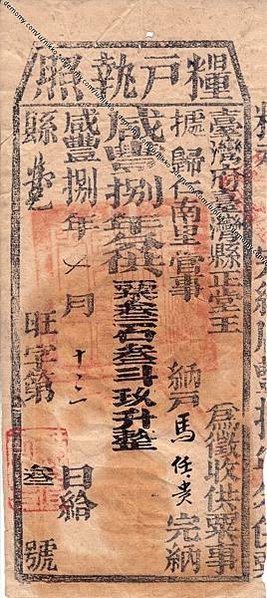 糧戶執照
臺灣府臺灣縣正堂王 為徵收供粟事
據歸仁南里官事 納戶馬任貴完納
咸豐捌年分供粟叁石叁斗玖升整
咸豐捌年 月十二日給
縣 旺字第叁號